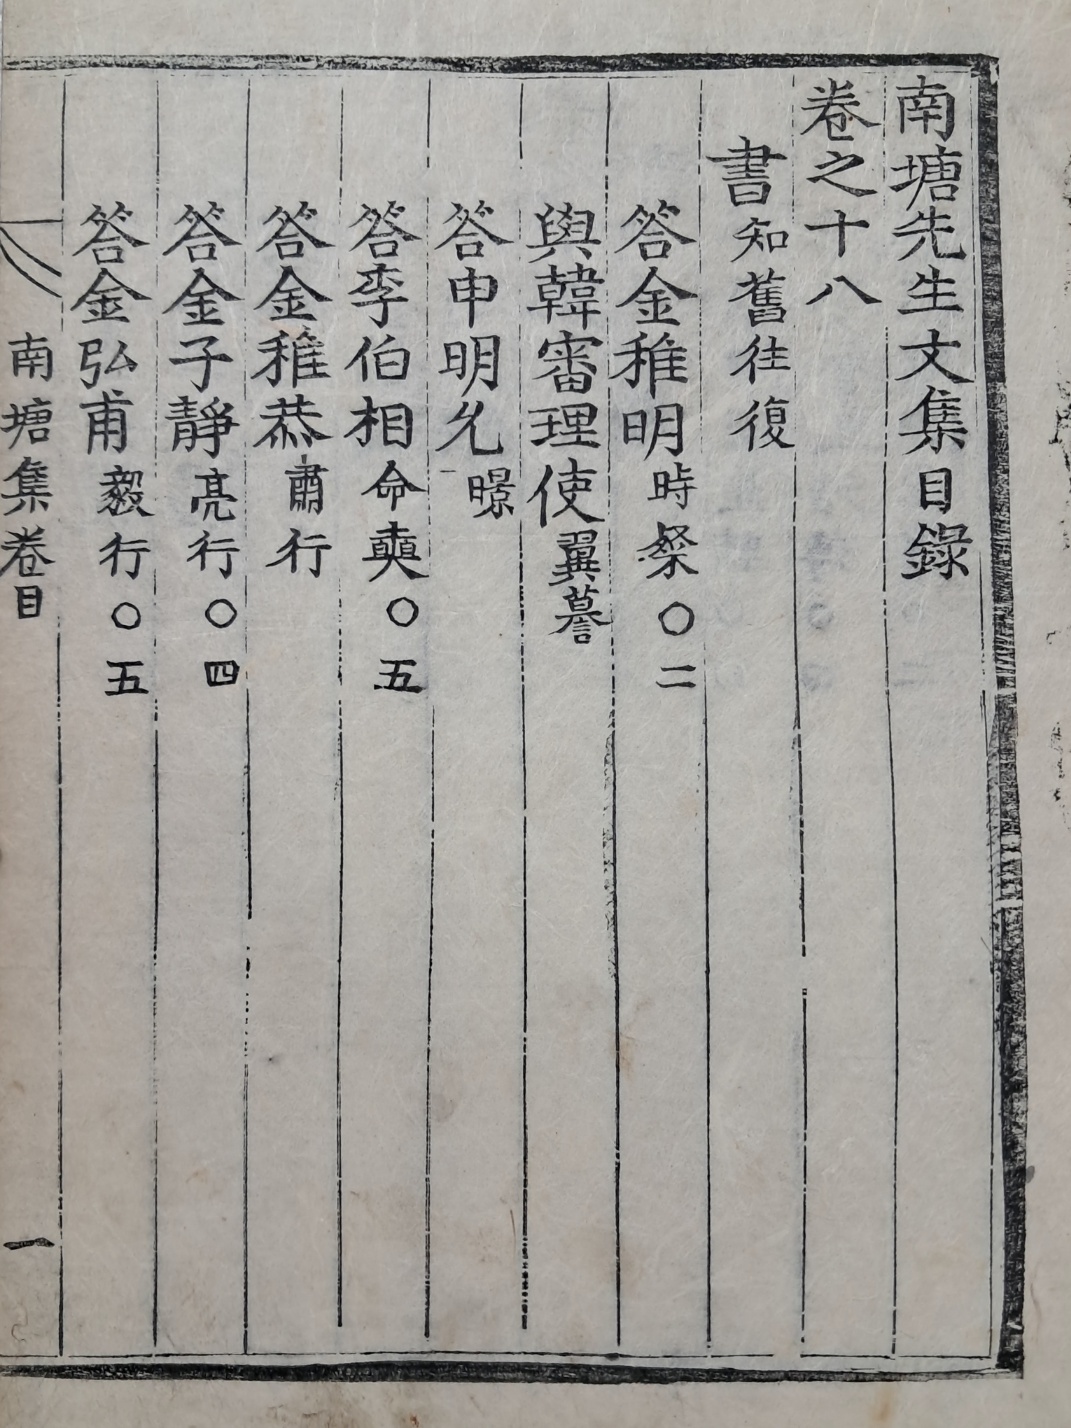 南塘先生文集目錄
卷之十八
書知舊往復
答金稚明時粲○二
與韓審理使翼謩
答申明允暻
答李伯相命奭○五
答金稚恭肅行
答金子靜亮行○四
答金弘甫毅行○五
南塘集卷目 一